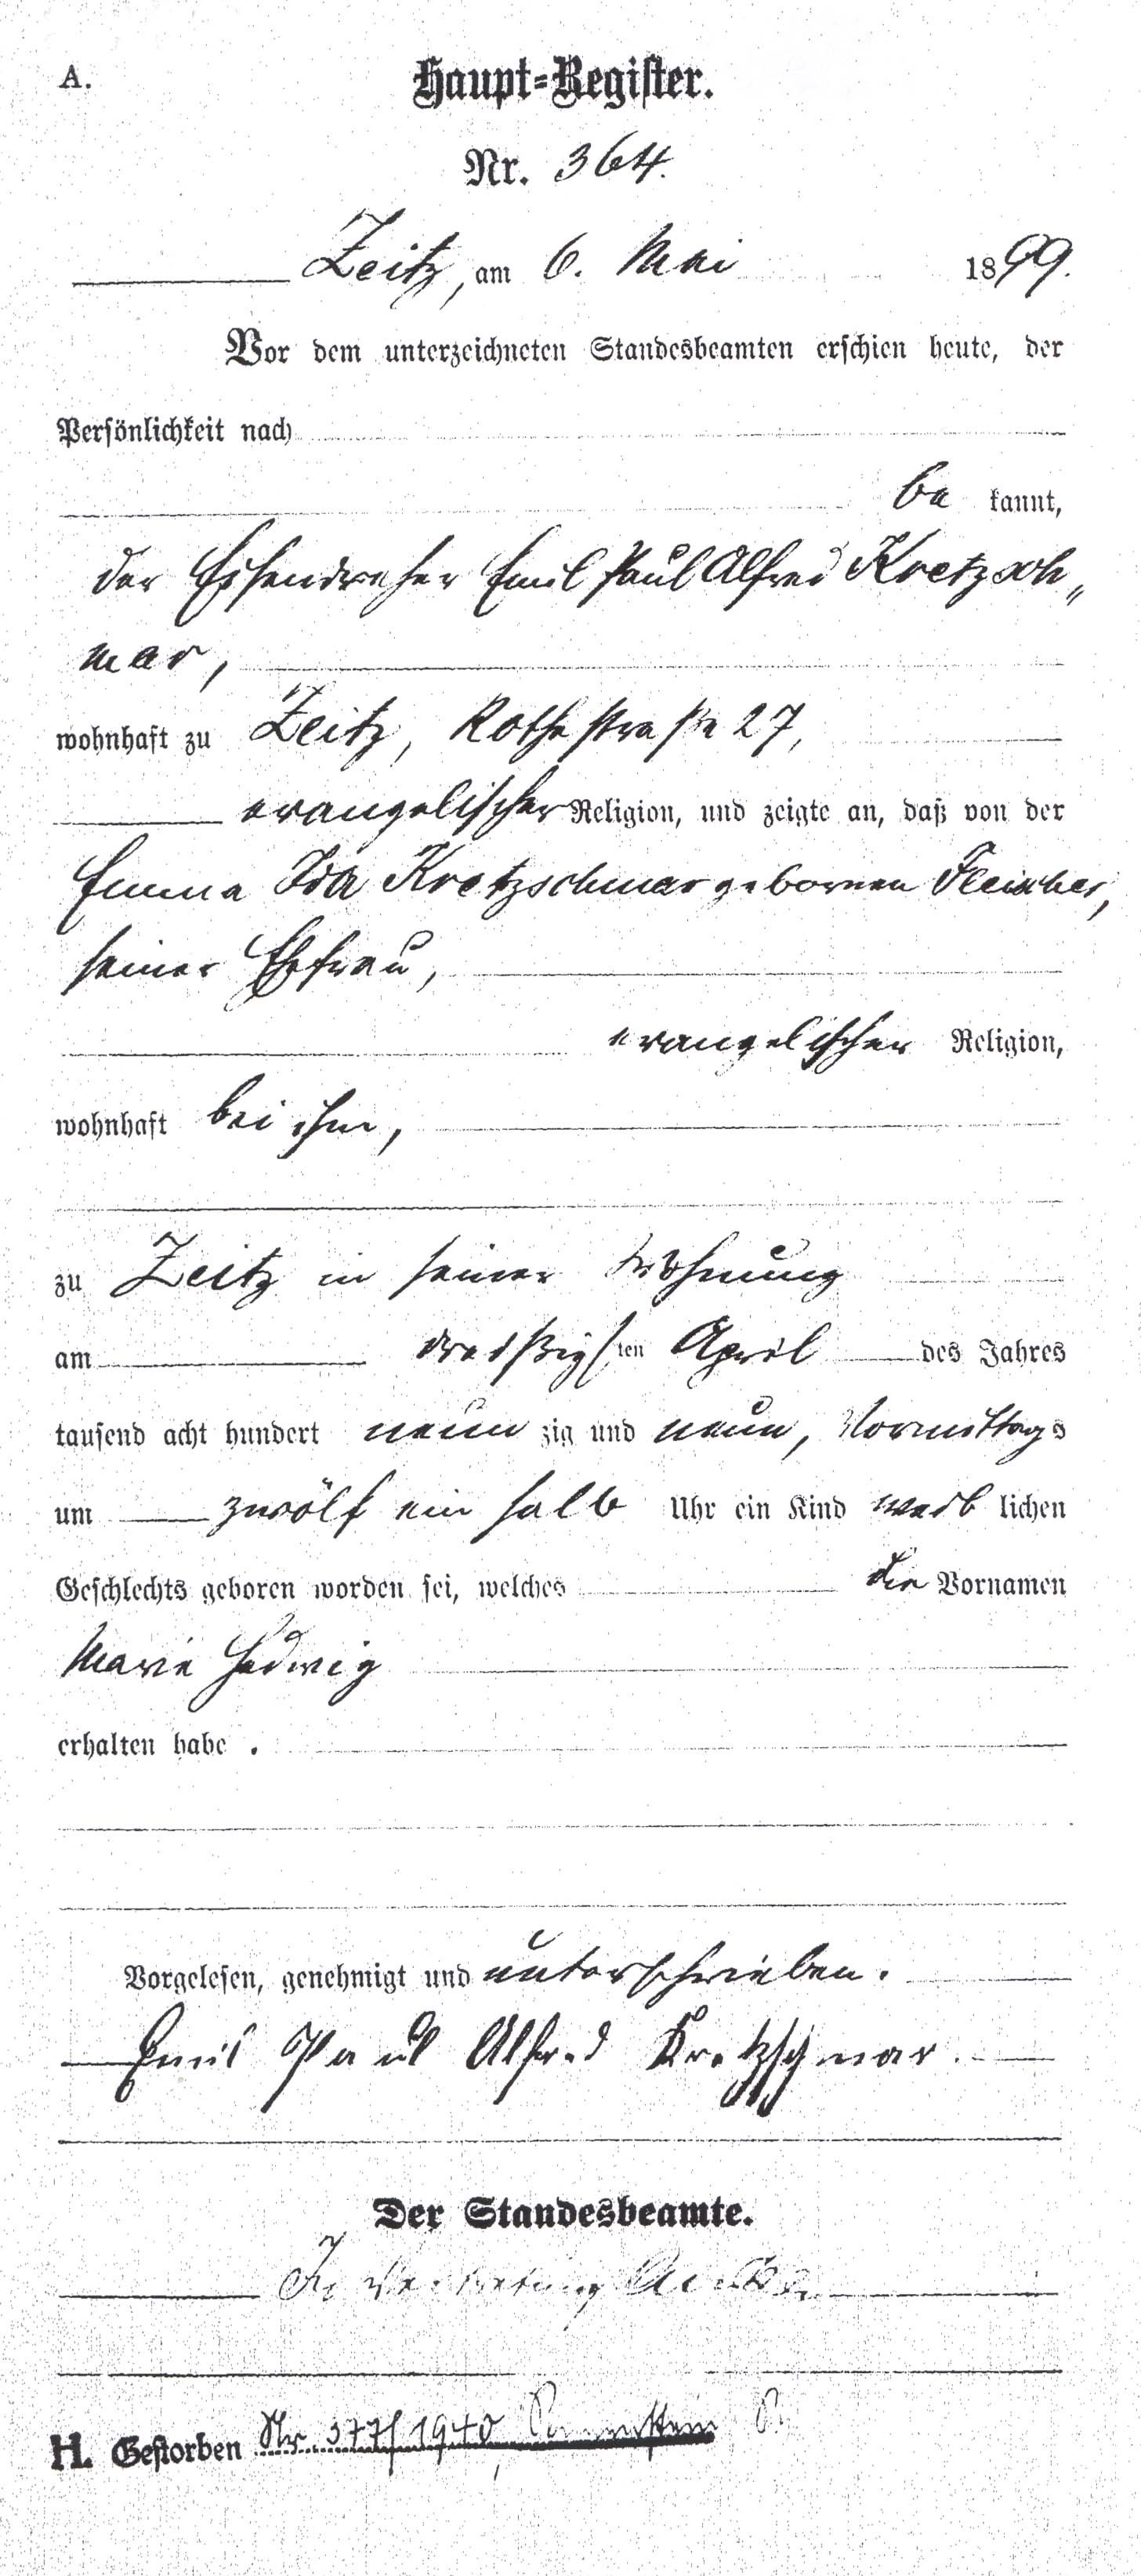 A.
Haupt=Register.
Nr. 364.
Zeitz, am 6. Mai 1899.
Vor dem unterzeichneten Standesbeamten erschien heute, der
Persönlichkeit nach
be kannt,
der Eisendreher Emil Paul Alfred Kretzsch„
mar,
wohnhaft zu Zeitz, Rothestraße 27,
evangelischer Religion, und zeigte an, daß von der
Emma Ida Kretzschmar gebornen Fleischer,
seiner Ehefrau,
evangelischer Religion,
wohnhaft bei ihm,
zu Zeitz in seiner Wohnung
am dreißigsten April des Jahres
tausend acht hundert neun zig und neun, Vormittags
um zwölf ein halb Uhr ein Kind weib lichen
Geschlechts geboren worden sei, welches die Vornamen
Marie Hedwig
erhalten habe .
Vorgelesen, genehmigt und unterschrieben.
Emil Paul Alfred Kretzschmar.
Der Standesbeamte.
In Vertretung
H. Gestorben Nr. 577/1940, Sonnenstein